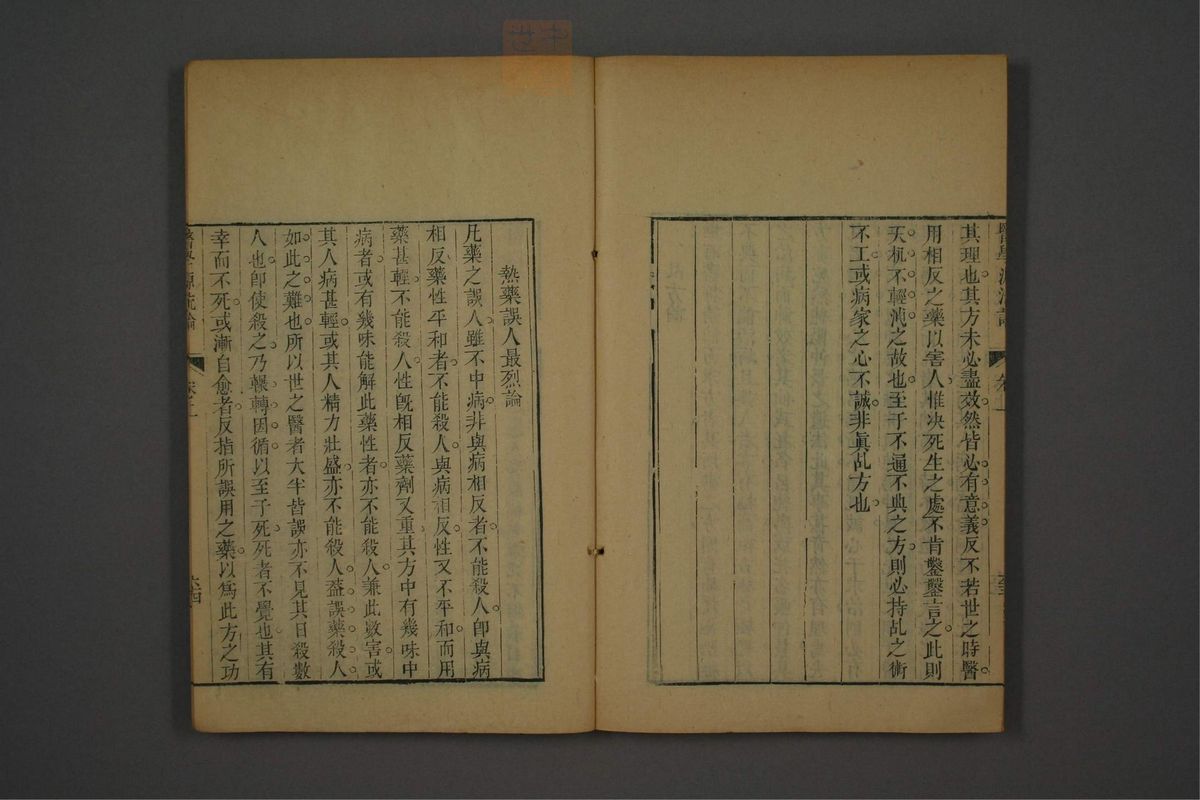 醫學源流論
卷上
其理也其方未必盡效然皆必有意義反不若世之時醫
用相反之藥以害人惟决死生之處不肯鑿鑿言之此則
天机不輕洩之故也至于不通不典之方則必持乩之術
不工或病家之心不誠非眞乩方也
熱藥誤人最烈論
凡藥之誤人雖不中病非與病相反者不能殺人卽與病
相反藥性平和者不能殺人與病相反性又不平和而用
藥甚輕不能殺人性旣相反藥劑又重其方中有幾味中
病者或有幾味能解此藥性者亦不能殺人兼此數害或
其人病甚輕或其人精力壯盛亦不能殺人葢誤藥殺人
如此之難也所以世之醫者大半皆誤亦不見其日殺數
人也卽使殺之乃輾轉因循以至于死死者不覺也其有
幸而不死或漸自愈者反指所誤用之藥以爲此方之功
醫學源流論